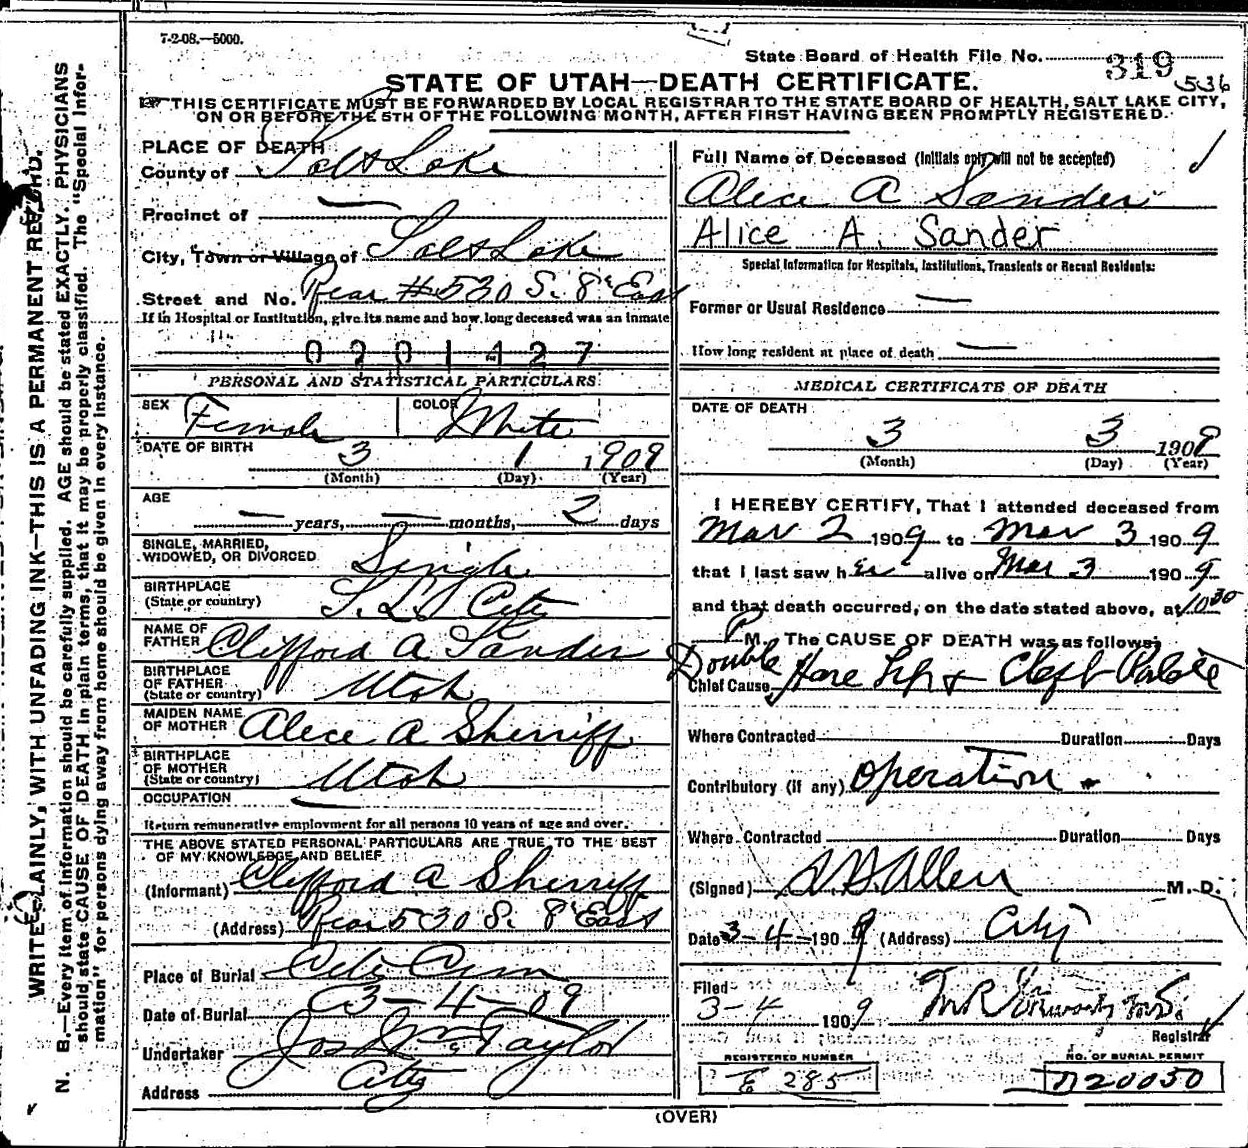 7-2-08.—5000.
State Board of Health File No. 319
536
STATE OF UTAH—DEATH CERTIFICATE.
THIS CERTIFICATE MUST BE FORWARDED BY LOCAL REGISTRAR TO THE STATE BOARD OF HEALTH, SALT LAKE CITY,
ON OR BEFORE THE 5TH OF THE FOLLOWING MONTH, AFTER FIRST HAVING BEEN PROMPTLY REGISTERED.
WRITE PLAINLY, WITH UNFADING INK—THIS IS A PERMANENT RECORD.
N. B.—Every item of information should be carefully supplied. AGE should be stated EXACTLY. PHYSICIANS
should state CAUSE OF DEATH in plain terms, that it may be properly classified. The "Special Infor-
mation" for persons dying away from home should be given in every instance.
PLACE OF DEATH
County of Salt Lake
Precinct of —
City, Town or Village of Salt Lake
Street and No. Rear #530 S. 8th East
If in Hospital or Institution, give its name and how long deceased was an inmate
0201427
PERSONAL AND STATISTICAL PARTICULARS
SEX Female COLOR White
DATE OF BIRTH 3 1 1909
(Month) (Day) (Year)
AGE — years, — months, 2 days
SINGLE, MARRIED,
WIDOWED, OR DIVORCED Single
BIRTHPLACE
(State or country) S. L. City
NAME OF
FATHER Clifford A Sander
BIRTHPLACE
OF FATHER
(State or country) Utah
MAIDEN NAME
OF MOTHER Alice A Sherriff
BIRTHPLACE
OF MOTHER
(State or country) Utah
OCCUPATION —
Return remunerative employment for all persons 10 years of age and over.
THE ABOVE STATED PERSONAL PARTICULARS ARE TRUE TO THE BEST
OF MY KNOWLEDGE AND BELIEF
(Informant) Clifford A Sherriff
(Address) Rear 530 S. 8 East
Place of Burial City Cem
Date of Burial 3-4-09
Undertaker Jos Wm Taylor
Address City
Full Name of Deceased (Initials only will not be accepted)
Alice A Sander
Alice A. Sander
Special Information for Hospitals, Institutions, Transients or Recent Residents:
Former or Usual Residence —
How long resident at place of death —
MEDICAL CERTIFICATE OF DEATH
DATE OF DEATH
3 3 1909
(Month) (Day) (Year)
I HEREBY CERTIFY, That I attended deceased from
Mar 2 1909 to Mar 3 1909
that I last saw her alive on Mar 3 1909
and that death occurred, on the date stated above, at 10 30
P M. The CAUSE OF DEATH was as follows:
Double
Chief Cause Hare Lip & Cleft Palate
Where Contracted Duration Days
Contributory (if any) operation
Where Contracted Duration Days
(Signed) Allen M. D.
Date 3-4-1909 (Address) City
Filed
3-4 1909
Registrar
REGISTERED NUMBER
E 285
NO. OF BURIAL PERMIT
D20050
(OVER)